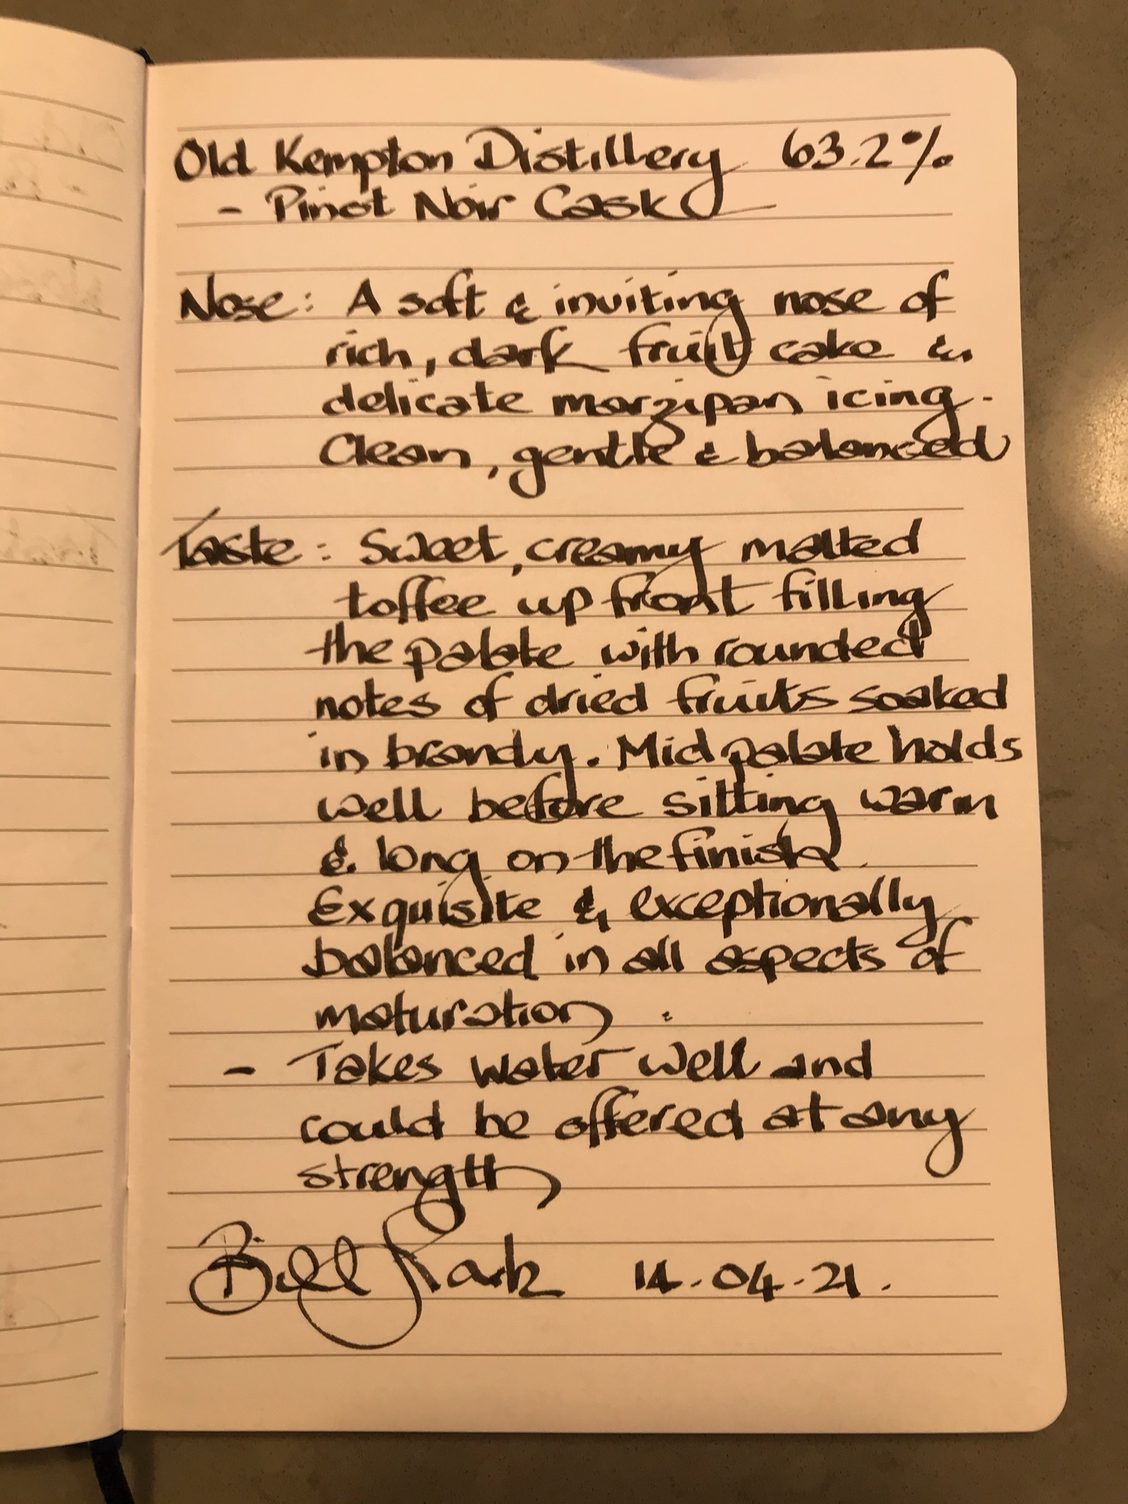 Old Kempton Distillery 63.2%
- Pinot Noir Cask
Nose: A soft & inviting nose of
rich, dark fruit cake &
delicate marzipan icing.
Clean, gentle & balanced
Taste: Sweet, creamy malted
toffee up front filling
the palate with rounded
notes of dried fruits soaked
in brandy. Mid palate holds
well before sitting warm
& long on the finish.
Exquisite & exceptionally
balanced in all aspects of
maturation.
- Takes water well and
could be offered at any
strength
Bill Lark 14.04.21.